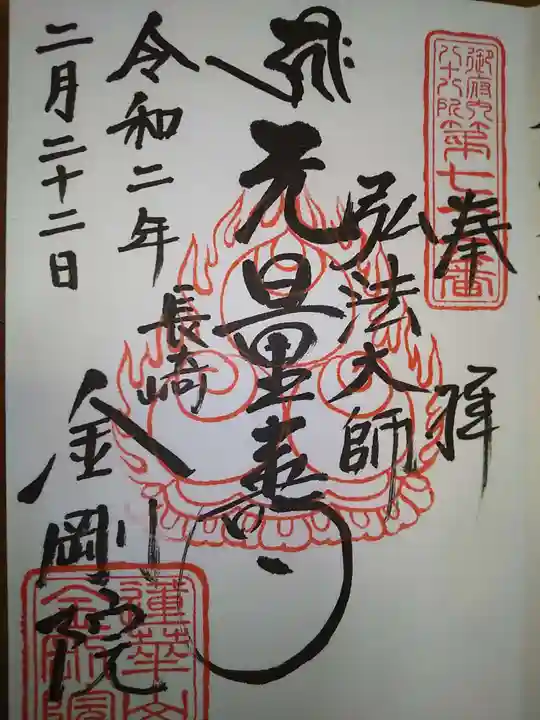 奉拝
御府内
八十八ヶ所
第七十六番
弘法大師
无量寿
長崎
金剛院
令和二年
二月二十二日
蓮華山
金剛院